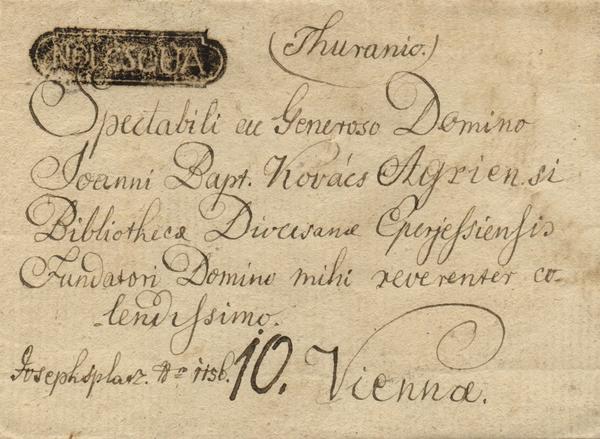 NDLESQUA
(Thuranio.)
Spectabili ac Generoso Domino
Joanni Bapt. Kovács Agriensi
Bibliothecæ Diœcesanæ Eperjessiensis
Fundatori Domino mihi reverenter co-
lendissimo.
Josephsplatz. 1156. 10. Viennæ.